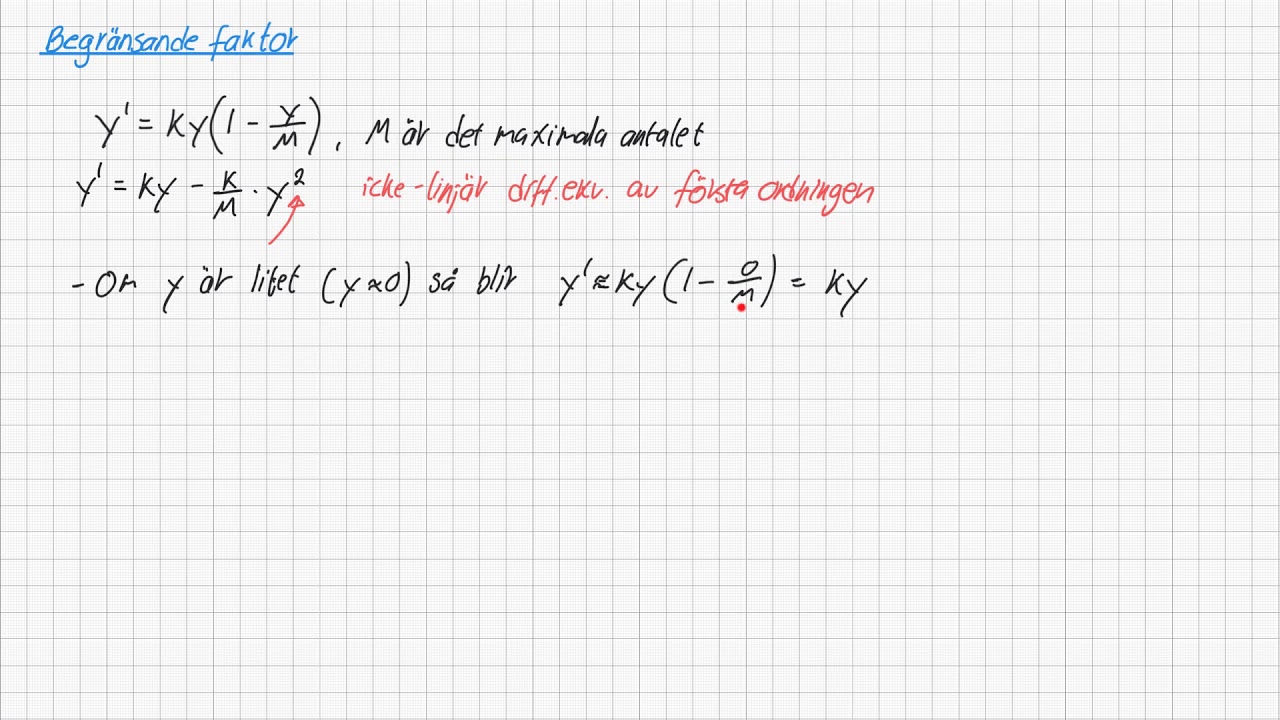 Begränsande faktor
y' = ky(1 - y/M), M är det maximala antalet
y' = ky - k/M · y² icke-linjär diff.ekv. av första ordningen
- Om y är litet (y≈0) så blir y' ≈ ky(1 - 0/M) = ky